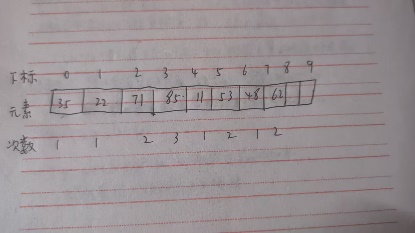 下标 0 1 2 3 4 5 6 7 8 9
元素 35 22 71 85 11 53 48 62
次数 1 1 2 3 1 2 1 2